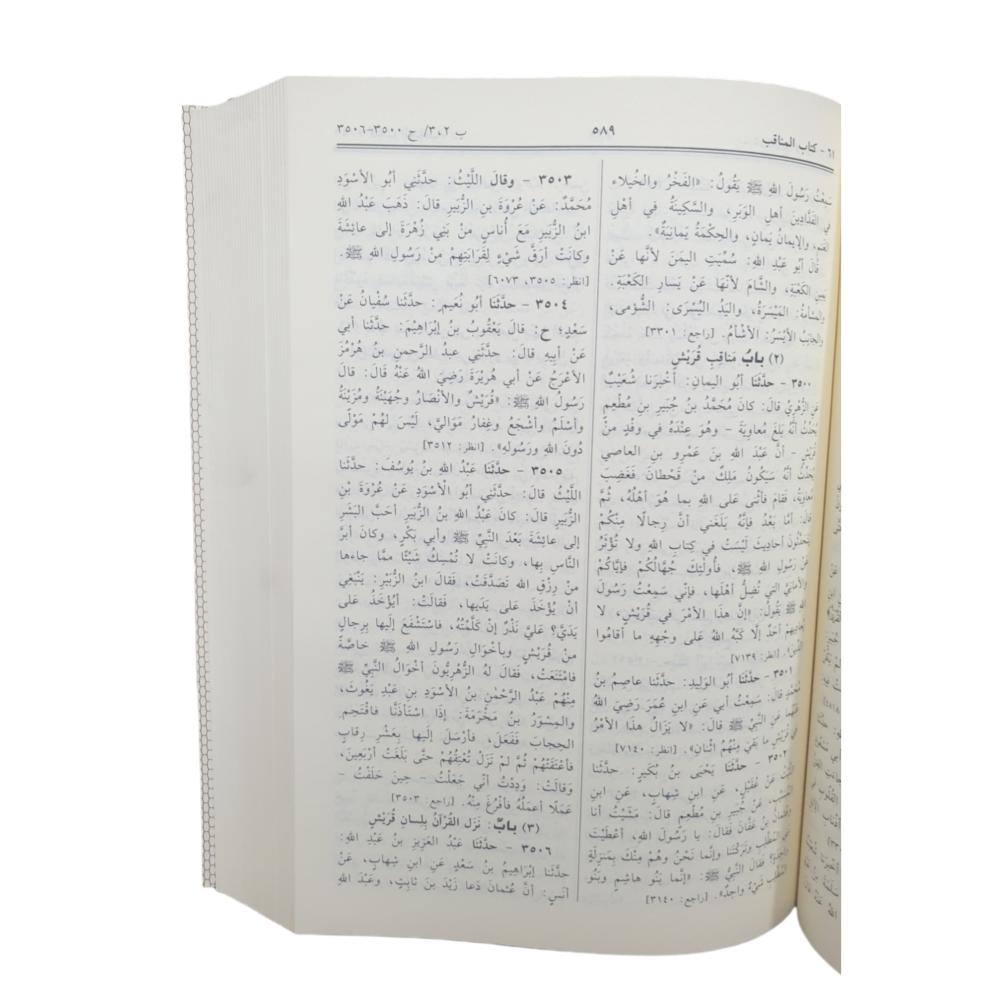 ٦١ - كتاب المناقب
٥٨٩
ب ٢، ٣/ ح ٣٥٠٠-٣٥٠٦
سَمِعْتُ رَسُولَ اللهِ ﷺ يَقُولُ: «الفَخْرُ والخُيلاء
في الفَدَّادِينَ أهلِ الوَبَرِ، والسَّكِينَةُ في أهْلِ
الغَنَمِ، والإيمانُ يَمانٍ، والحِكْمَةُ يَمانِيَةٌ».
قَالَ أبُو عَبْدِ اللهِ: سُمِّيَتِ اليمَنَ لأنَّها عَنْ
يَمِينِ الكَعْبَةِ، والشَّامَ لأنّهَا عَنْ يَسَارِ الكَعْبَةِ.
والمشأمةُ: المَيْسَرَةُ، واليَدُ اليُسْرَى: الشُّؤمى،
والجَانِبُ الأيْسَرُ: الأشْأمُ. [راجع: ٣٣٠١]
(٢) بابُ مَناقِبِ قُرَيْشٍ
٣٥٠٠ - حدّثَنَا أبُو اليمانِ: أخْبَرَنا شُعَيْبٌ
عَنِ الزُّهْرِيِّ قالَ: كانَ مُحَمَّدُ بنُ جُبَيرِ بنِ مُطْعِمٍ
يُحَدِّثُ أنَّهُ بَلَغَ مُعاوِيَةَ - وهُوَ عِنْدَهُ في وفْدٍ منْ
قُرَيْشٍ - أنَّ عَبْدَ اللهِ بنَ عَمْرِو بنِ العاصي
يُحَدِّثُ أنَّهُ سَيَكُونُ مَلِكٌ منْ قَحْطانَ فَغَضِبَ
مُعاوِيَةُ، فَقامَ فأثْنَى عَلى اللهِ بما هُو أهْلُهُ، ثُمَّ
قالَ: أمّا بَعْدُ فإنَّهُ بَلَغَني أنَّ رِجالًا مِنْكُمْ
يَتحَدَّثُونَ أحادِيثَ لَيْسَتْ في كِتابِ اللهِ ولا تُؤْثَرُ
عَنْ رَسُولِ اللهِ ﷺ، فأُولٰئِكَ جُهَّالُكُمْ فإيَّاكُمْ
والأمانِيَّ التي تُضِلُّ أهْلَها، فإنّي سَمِعْتُ رَسُولَ
اللهِ ﷺ يَقُولُ: «إنَّ هَذا الأمْرَ في قُرَيْشٍ، لا
يُعادِيهِمْ أحَدٌ إلَّا كَبَّهُ اللهُ عَلى وجْهِهِ ما أقامُوا
الدِّينَ». [انظر: ٧١٣٩]
٣٥٠١ - حدّثَنا أبُو الوَلِيدِ: حدّثَنا عاصِمُ بنُ
مُحمدٍ قالَ: سَمِعْتُ أبي عَنِ ابنِ عُمَرَ رَضِيَ اللهُ
عَنْهُما عَنِ النَّبِيِّ ﷺ قالَ: «لا يَزَالُ هذا الأمْرُ
في قُرَيْشٍ ما بَقِيَ مِنْهُمُ اثْنانِ». [انظر: ٧١٤٠]
٣٥٠٢ - حدّثَنا يَحْيَى بنُ بُكَيرٍ: حدّثَنا
اللَّيْثُ عَنْ عُقَيْلٍ، عَنِ ابنِ شِهابٍ، عَنِ ابنِ
المُسَيَّبِ، عَنْ جُبَيرِ بنِ مُطْعِمٍ قالَ: مَشَيْتُ أنا
وعُثْمانُ بنُ عَفَّانَ فَقالَ: يا رَسُولَ اللهِ، أعْطَيْتَ
بَني المُطَّلِبِ وتَرَكْتَنَا وإنَّما نَحْنُ وهُمْ مِنْكَ بمَنْزِلَةٍ
واحِدَةٍ؟ فَقالَ النَّبِيُّ ﷺ: «إنَّما بَنُو هاشِمٍ وبَنُو
المُطَّلِبِ شَيْءٌ واحِدٌ». [راجع: ٣١٤٠]
٣٥٠٣ - وقالَ اللَّيْثُ: حدّثَني أبُو الأسْوَدِ
مُحَمَّدٌ: عَنْ عُرْوَةَ بنِ الزُّبَيرِ قالَ: ذَهَبَ عَبْدُ اللهِ
ابنُ الزُّبَيرِ مَعَ أُناسٍ منْ بَني زُهْرَةَ إلى عائِشَةَ
وكانَتْ أرَقَّ شَيْءٍ لِقَرابَتِهِمْ منْ رَسُولِ اللهِ ﷺ.
[انظر: ٣٥٠٥، ٦٠٧٣]
٣٥٠٤ - حدّثَنا أبُو نُعَيمٍ: حدّثَنا سُفْيانُ عَنْ
سَعْدٍ؛ ح: قالَ يَعْقُوبُ بنُ إبْرَاهِيْمَ: حدّثَنا أبي
عَنْ أبِيهِ قالَ: حدّثَني عبدُ الرَّحمنِ بنُ هُرْمُزَ
الأعْرَجُ عَنْ أبي هُرَيرَةَ رَضِيَ اللهُ عَنْهُ قَالَ: قَالَ
رَسُولُ اللهِ ﷺ: «قُرَيْشٌ والأنْصَارُ وجُهَيْنَةُ ومُزَيْنَةُ
وأسْلَمُ وأشْجَعُ وغِفارُ مَوَاليَّ، لَيْسَ لهُمْ مَوْلًى
دُونَ اللهِ ورَسُولِهِ». [انظر: ٣٥١٢]
٣٥٠٥ - حدّثَنَا عَبْدُ اللهِ بنُ يُوسُفَ: حدّثَنا
اللَّيْثُ قالَ: حدّثَني أبُو الأسْوَدِ عَنْ عُرْوَةَ بْنِ
الزُّبَيرِ قالَ: كانَ عَبْدُ اللهِ بنُ الزُّبَيرِ أحَبَّ البَشَرِ
إلى عائِشَةَ بَعْدَ النَّبِيِّ ﷺ وأبي بَكْرٍ، وكانَ أبَرَّ
النَّاسِ بِها، وكانَتْ لا تُمْسِكُ شَيْئًا ممَّا جاءها
منْ رِزْقِ الله تَصَدَّقَتْ، فَقالَ ابنُ الزُّبَيْرِ: يَنْبَغِي
أنْ يُؤْخَذَ عَلى يَدَيها، فَقالَتْ: أيُؤْخَذُ عَلى
يَدَيَّ؟ عَليَّ نَذْرٌ إنْ كَلَّمْتُهُ، فاسْتَشْفَعَ إلَيها بِرِجالٍ
منْ قُرَيْشٍ وبأخْوَالِ رَسُولِ اللهِ ﷺ خاصَّةً
فامْتَنَعَتْ، فَقالَ لهُ الزُّهْرِيُّونَ أخْوَالُ النَّبِيِّ ﷺ
مِنْهُمْ عَبْدُ الرَّحْمٰنِ بنُ الأسْوَدِ بنِ عَبْدِ يَغُوثَ،
والمِسْوَرُ بنُ مَخْرَمَةَ: إذَا اسْتَأذَنَّا فاقْتَحِمِ
الحِجابَ فَفَعَلَ، فأرْسَلَ إلَيها بِعَشْرِ رِقابٍ
فأعْتَقَتْهُمْ ثُمَّ لمْ تَزَلْ تُعْتِقُهُمْ حتَّى بَلَغَتْ أرْبَعِينَ،
وقَالَتْ: وَدِدْتُ أنِّي جَعَلْتُ - حِينَ حَلَفْتُ -
عَمَلًا أعمَلُهُ فأفْرُغَ مِنْهُ. [راجع: ٣٥٠٣]
(٣) بابٌ: نَزَلَ القُرْآنُ بِلِسانِ قُرَيْشٍ
٣٥٠٦ - حدّثَنَا عَبْدُ العَزِيزِ بنُ عَبْدِ اللهِ:
حدّثَنا إبْراهِيمُ بنُ سَعْدٍ عَنِ ابنِ شِهابٍ، عَنْ
أنَسٍ: أنَّ عُثمانَ دَعا زَيْدَ بنَ ثابِتٍ، وعَبْدَ اللهِ